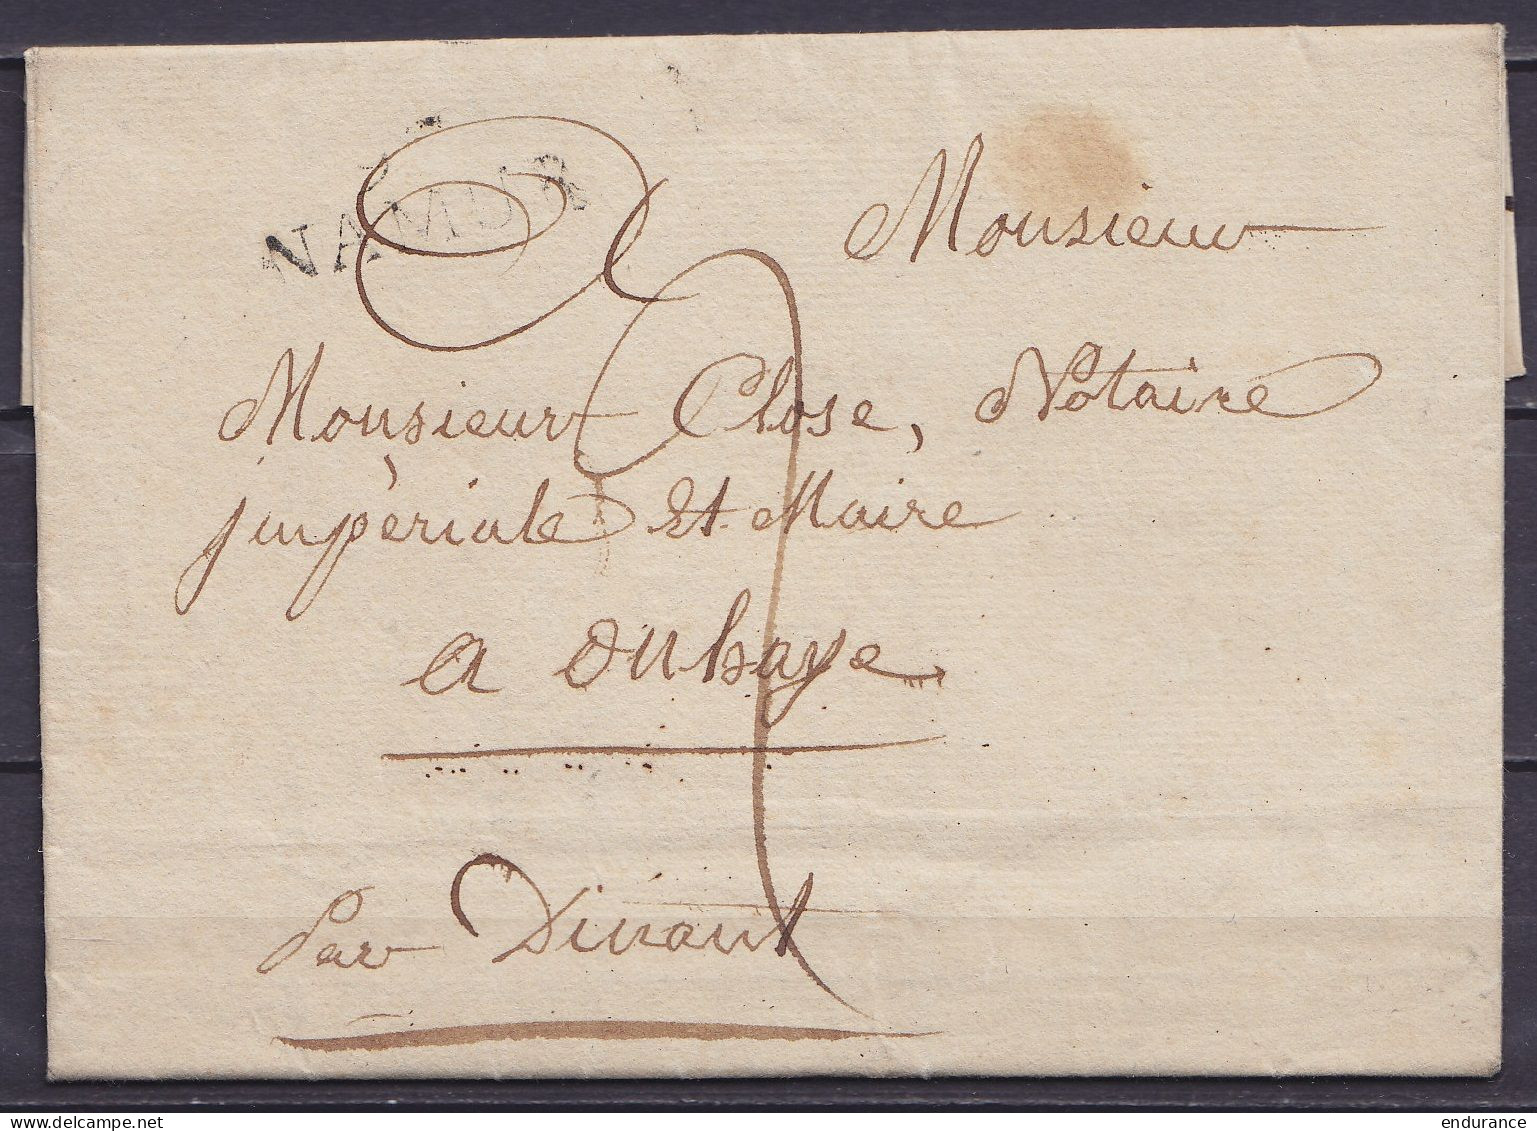 NAMUR
Monsieur
Monsieur Close, Notaire
jmpèriale Et Maire
a onhaye
Par Dinant
endurance